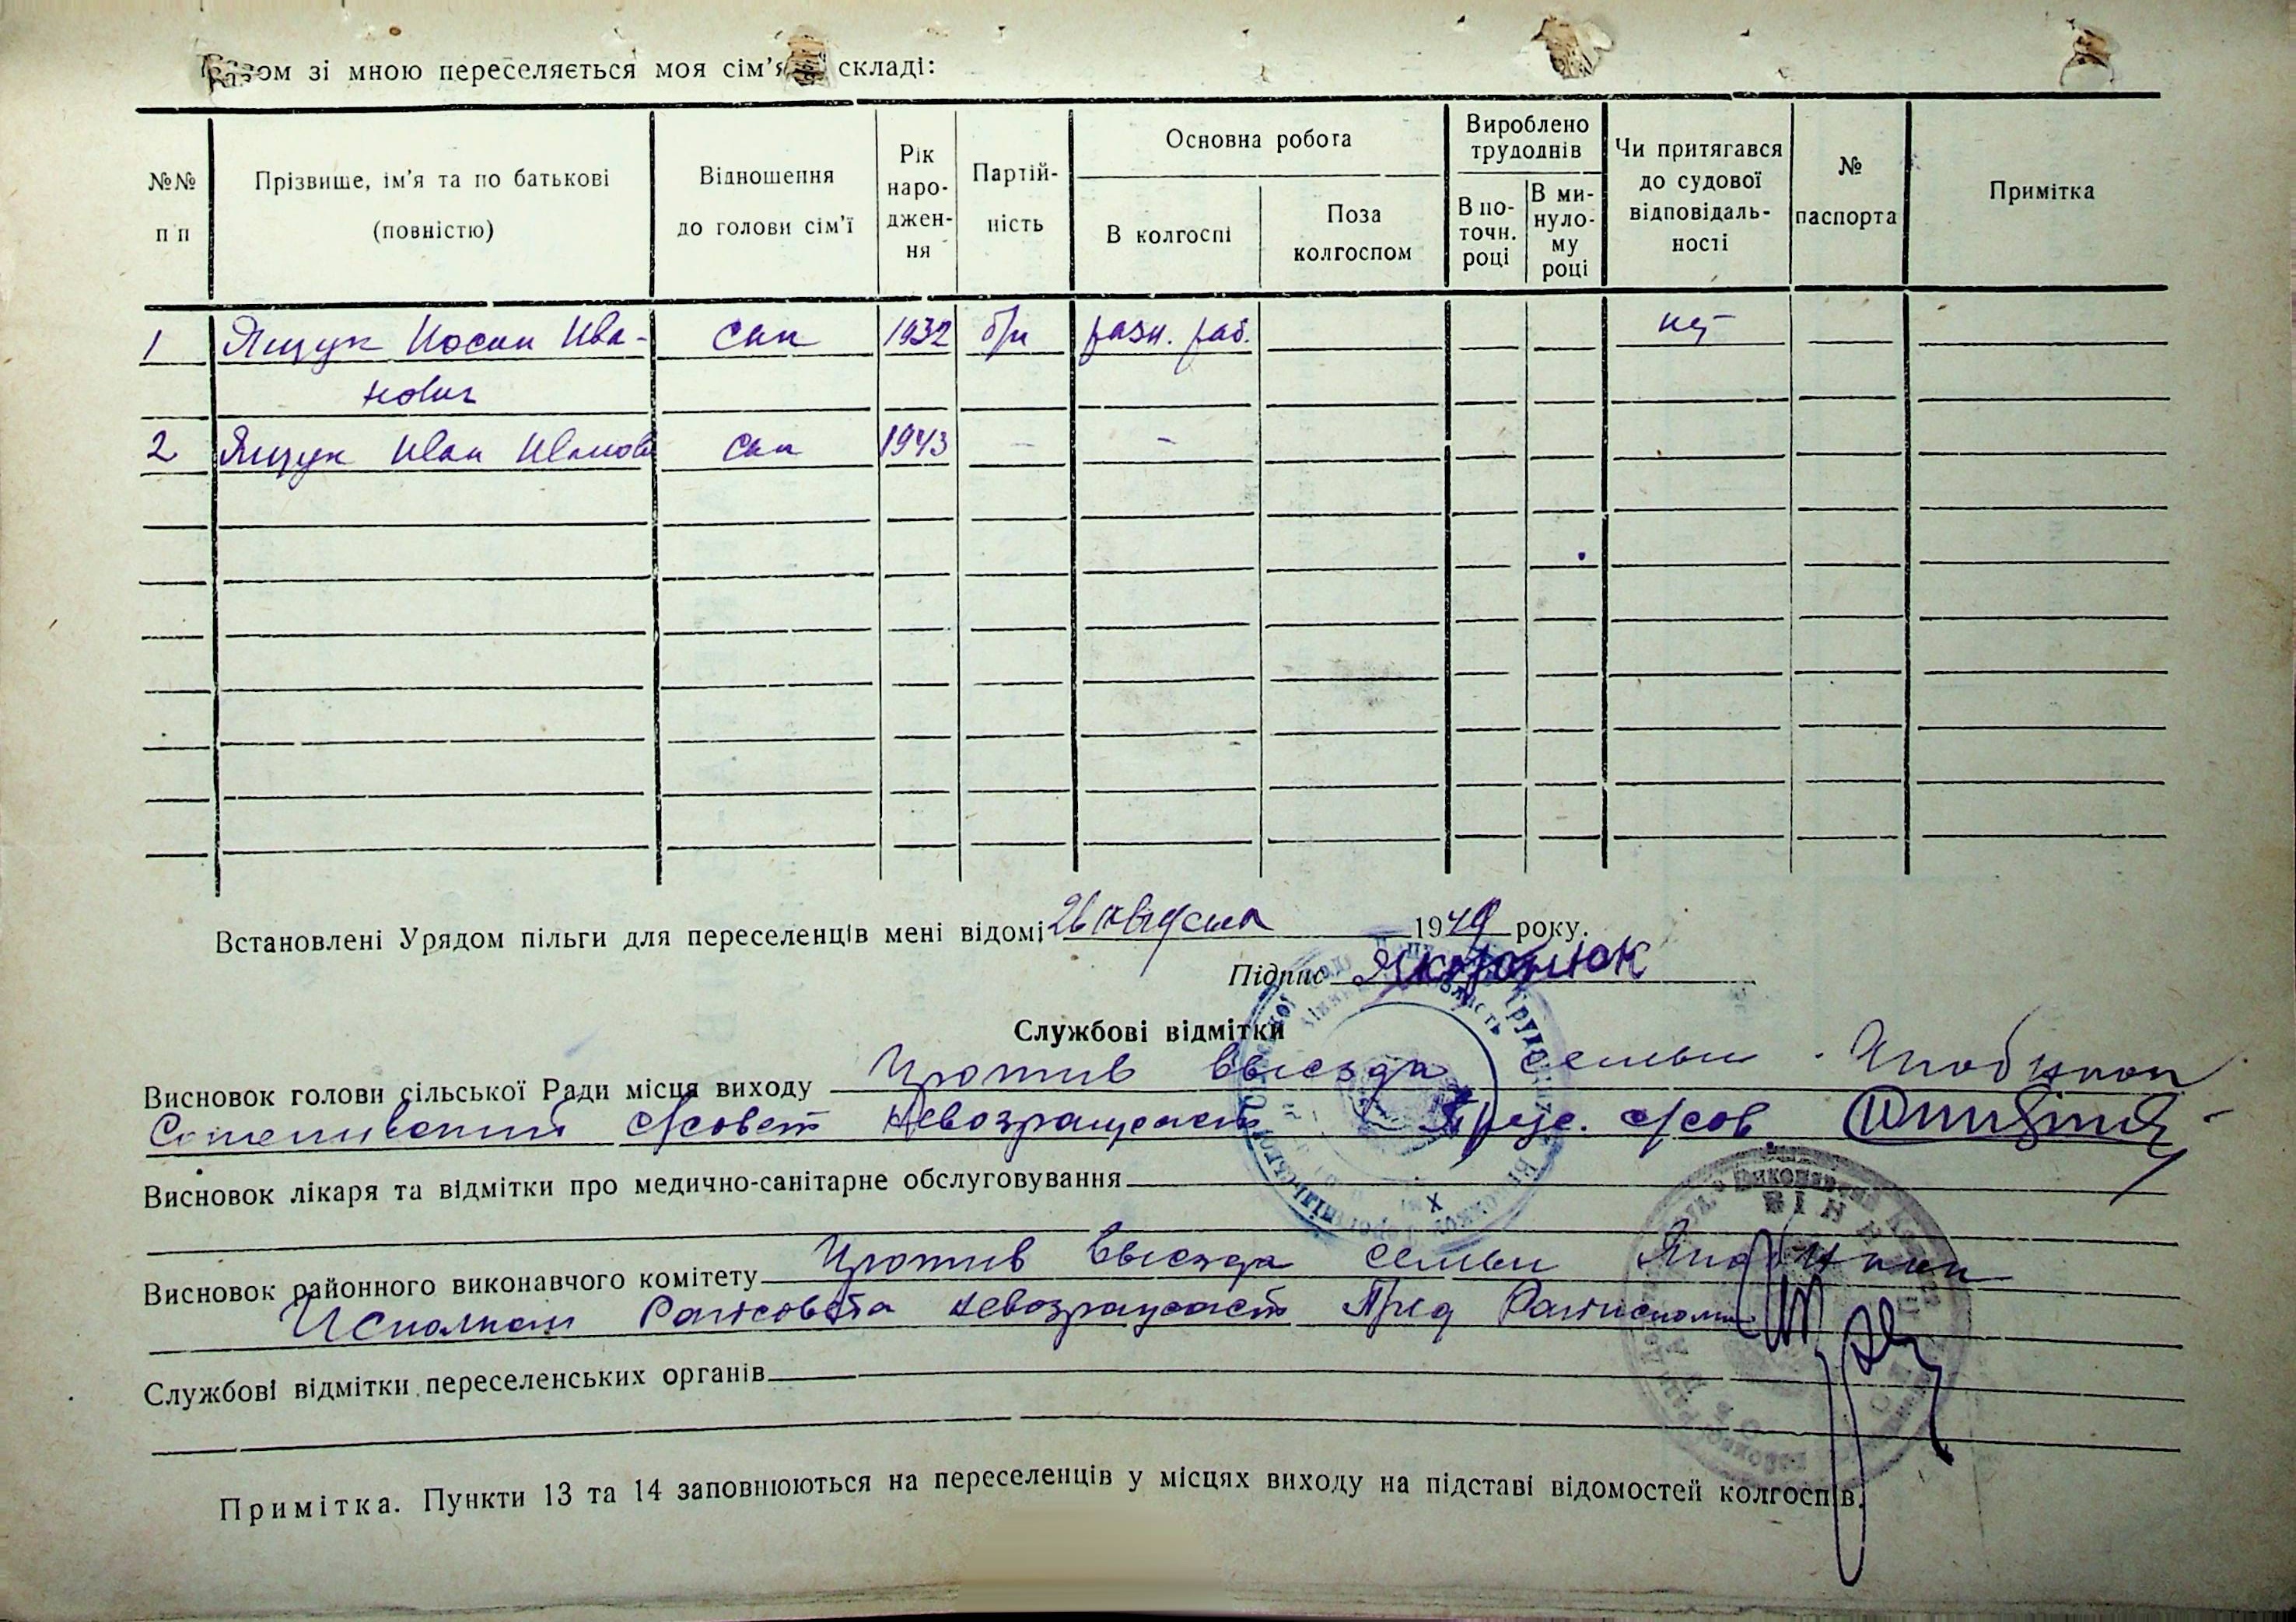 Разом зі мною переселяється моя сім'я складі:
№№ п п Прізвище, ім'я та по батькові (повністю) Відношення до голови сім'ї Рік народження Партійність Основна робота В колгоспі Поза колгоспом Вироблено трудоднів В поточн. році В минулому році Чи притягався до судової відповідальності № паспорта Примітка
1 Ящук Иосип Ива- сын 1932 б/п разн. раб. нет
нович
2 Ящук Иван Иванов сын 1943 - -
Встановлені Урядом пільги для переселенців мені відомі 26 августа 1949 року.
Підпис
Службові відмітки
Висновок голови сільської Ради місця виходу Против выезда семьи
с/совет невозращает Пред. с/сов.
Висновок лікаря та відмітки про медично-санітарне обслуговування
Висновок районного виконавчого комітету Против выезда семьи
Исполком Райсовета невозращает Пред Райисполкома
Службові відмітки переселенських органів
Примітка. Пункти 13 та 14 заповнюються на переселенців у місцях виходу на підставі відомостей колгоспів.